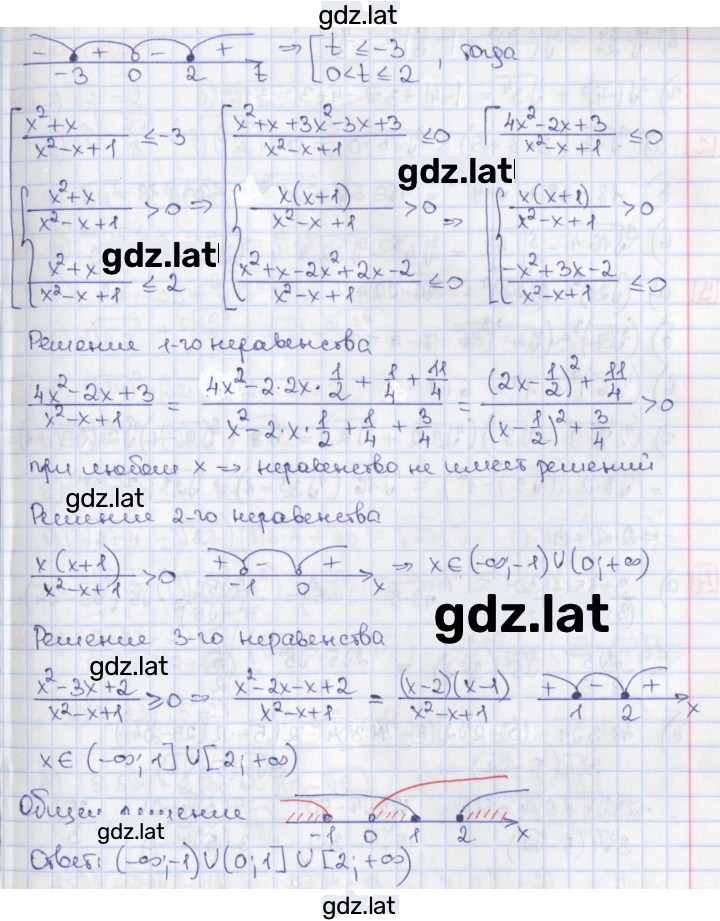 gdz.lat
- + - + -3 0 2 t ⇒ [ t ≤ -3 ; 0 < t ≤ 2 , тогда
[ (x²+x)/(x²-x+1) ≤ -3 [ (x²+x+3x²-3x+3)/(x²-x+1) ≤ 0 [ (4x²-2x+3)/(x²-x+1) ≤ 0
gdz.lat
{ (x²+x)/(x²-x+1) > 0 ⇒ { x(x+1)/(x²-x+1) > 0 ⇒ { x(x+1)/(x²-x+1) > 0
gdz.lat
(x²+x)/(x²-x+1) ≤ 2 (x²+x-2x²+2x-2)/(x²-x+1) ≤ 0 (-x²+3x-2)/(x²-x+1) ≤ 0
Решение 1-го неравенства
(4x²-2x+3)/(x²-x+1) = (4x²-2·2x·1/2+1/4+11/4)/(x²-2·x·1/2+1/4+3/4) = ((2x-1/2)²+11/4)/((x-1/2)²+3/4) > 0
при любом x ⇒ неравенство не имеет решений
gdz.lat
Решение 2-го неравенства
x(x+1)/(x²-x+1) > 0 + - + -1 0 x ⇒ x∈(-∞;-1)∪(0;+∞)
gdz.lat
Решение 3-го неравенства
gdz.lat
(x²-3x+2)/(x²-x+1) ≥ 0 ⇒ (x²-2x-x+2)/(x²-x+1) = (x-2)(x-1)/(x²-x+1) + - + 1 2 x
x∈(-∞;1]∪[2;+∞)
Общее решение -1 0 1 2 x
gdz.lat
Ответ: (-∞;-1)∪(0;1]∪[2;+∞)
gdz.lat